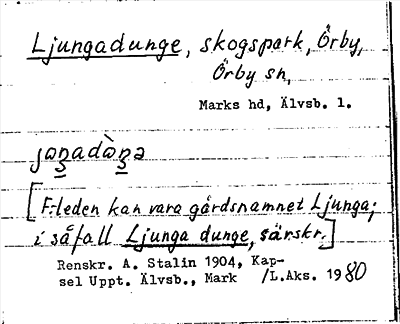 Ljungadunge, skogspark, Örby,
Örby sn,
Marks hd, Älvsb. l.
joŋadàŋə
[F:leden kan vara gårdsnamnet Ljunga;
i så fall Ljunga dunge, särskr.]
Renskr. A. Stalin 1904, Kap-
sel Uppt. Älvsb., Mark /L.Aks. 1980